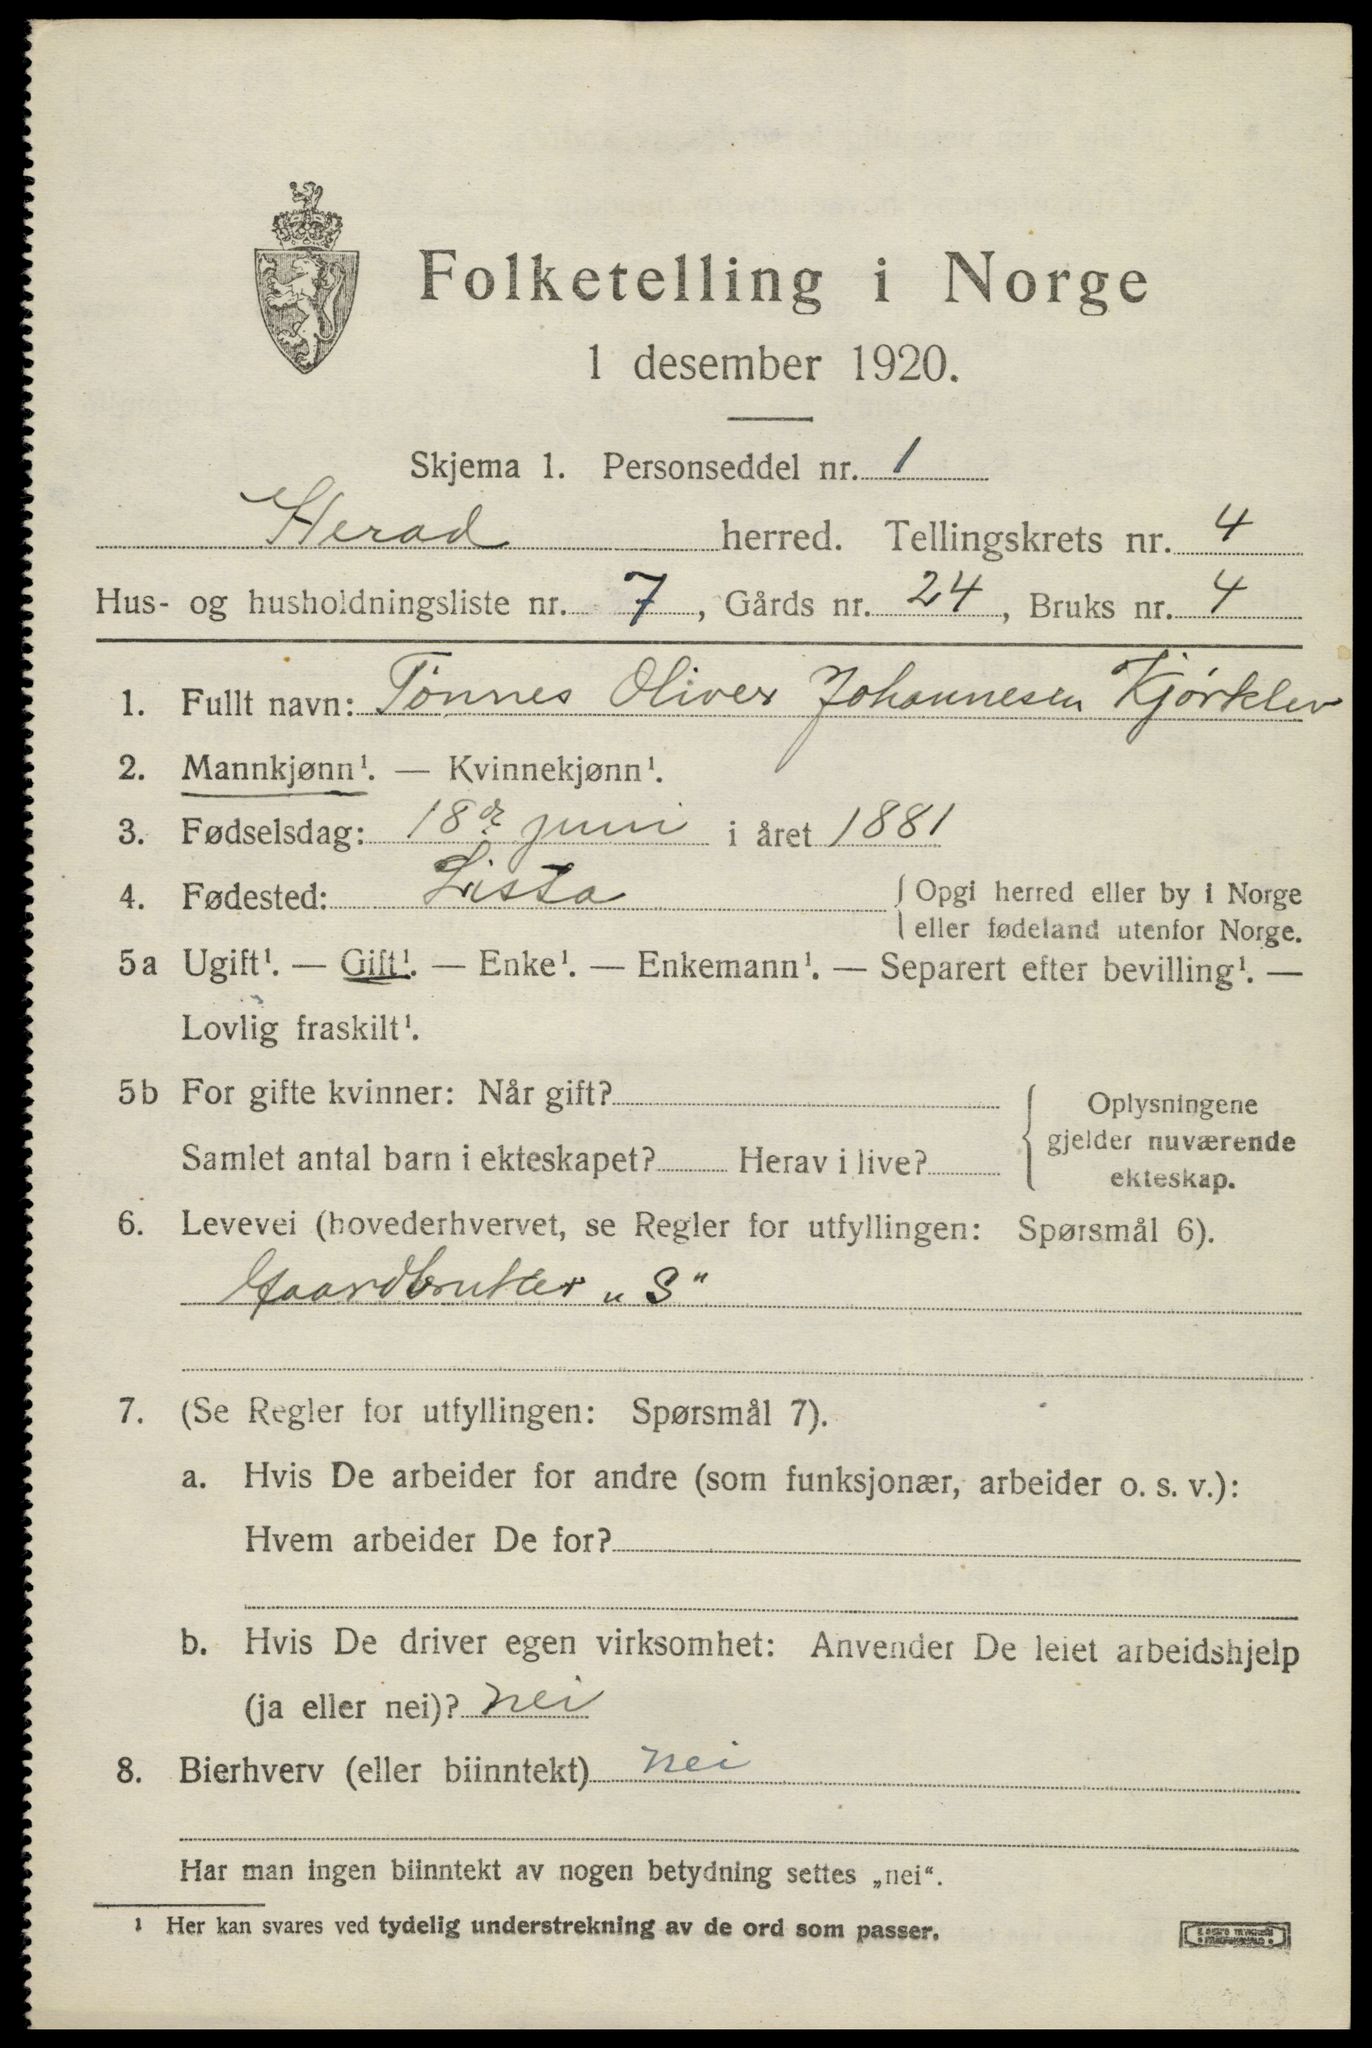 Folketelling i Norge
1 desember 1920.
Skjema 1. Personseddel nr. 1
Herad herred. Tellingskrets nr. 4
Hus- og husholdningsliste nr. 7, Gårds nr. 24, Bruks nr. 4
1. Fullt navn: Tönnes Oliver Johannesen Kjörklev
2. Mannkjønn¹. — Kvinnekjønn¹.
3. Fødselsdag: 18de juni i året 1881
4. Fødested: Lista { Opgi herred eller by i Norge
eller fødeland utenfor Norge.
5a Ugift¹. — Gift¹. — Enke¹. — Enkemann¹. — Separert efter bevilling¹. —
Lovlig fraskilt¹.
5b For gifte kvinner: Når gift?
Samlet antal barn i ekteskapet? Herav i live?
{ Oplysningene
gjelder nuværende
ekteskap.
6. Levevei (hovederhvervet, se Regler for utfyllingen: Spørsmål 6).
Gaardbruker „S"
7. (Se Regler for utfyllingen: Spørsmål 7).
a. Hvis De arbeider for andre (som funksjonær, arbeider o. s. v.):
Hvem arbeider De for?
b. Hvis De driver egen virksomhet: Anvender De leiet arbeidshjelp
(ja eller nei)? nei
8. Bierhverv (eller biinntekt) nei
Har man ingen biinntekt av nogen betydning settes „nei“.
¹ Her kan svares ved tydelig understrekning av de ord som passer.